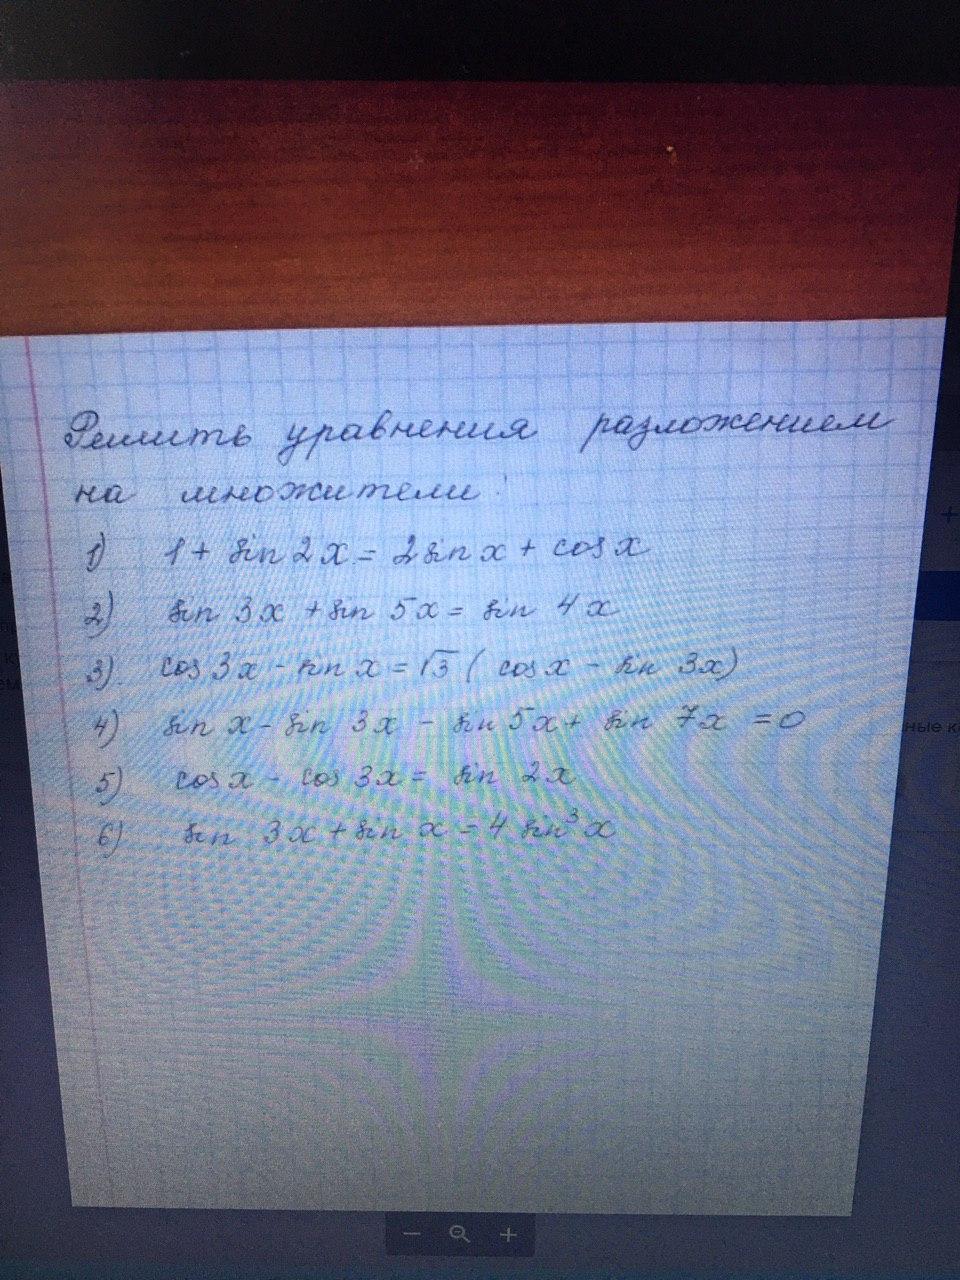 Решить уравнения разложением
на множители:
1) 1 + sin 2x = 2 sin x + cos x
2) sin 3x + sin 5x = sin 4x
3). cos 3x - sin x = √3 ( cos x - sin 3x)
4) sin x - sin 3x - sin 5x + sin 7x = 0
5) cos x - cos 3x = sin 2x
6) sin 3x + sin x = 4 sin³ x